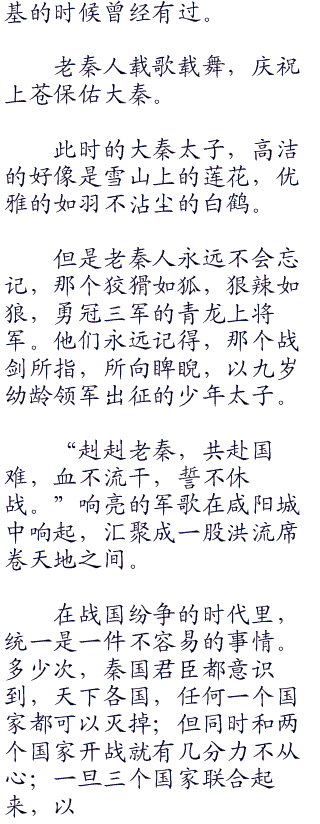 基的时候曾经有过。
老秦人载歌载舞，庆祝
上苍保佑大秦。
此时的大秦太子，高洁
的好像是雪山上的莲花，优
雅的如羽不沾尘的白鹤。
但是老秦人永远不会忘
记，那个狡猾如狐，狠辣如
狼，勇冠三军的青龙上将
军。他们永远记得，那个战
剑所指，所向睥睨，以九岁
幼龄领军出征的少年太子。
“赳赳老秦，共赴国
难，血不流干，誓不休
战。”响亮的军歌在咸阳城
中响起，汇聚成一股洪流席
卷天地之间。
在战国纷争的时代里，
统一是一件不容易的事情。
多少次，秦国君臣都意识
到，天下各国，任何一个国
家都可以灭掉；但同时和两
个国家开战就有几分力不从
心；一旦三个国家联合起
来，以